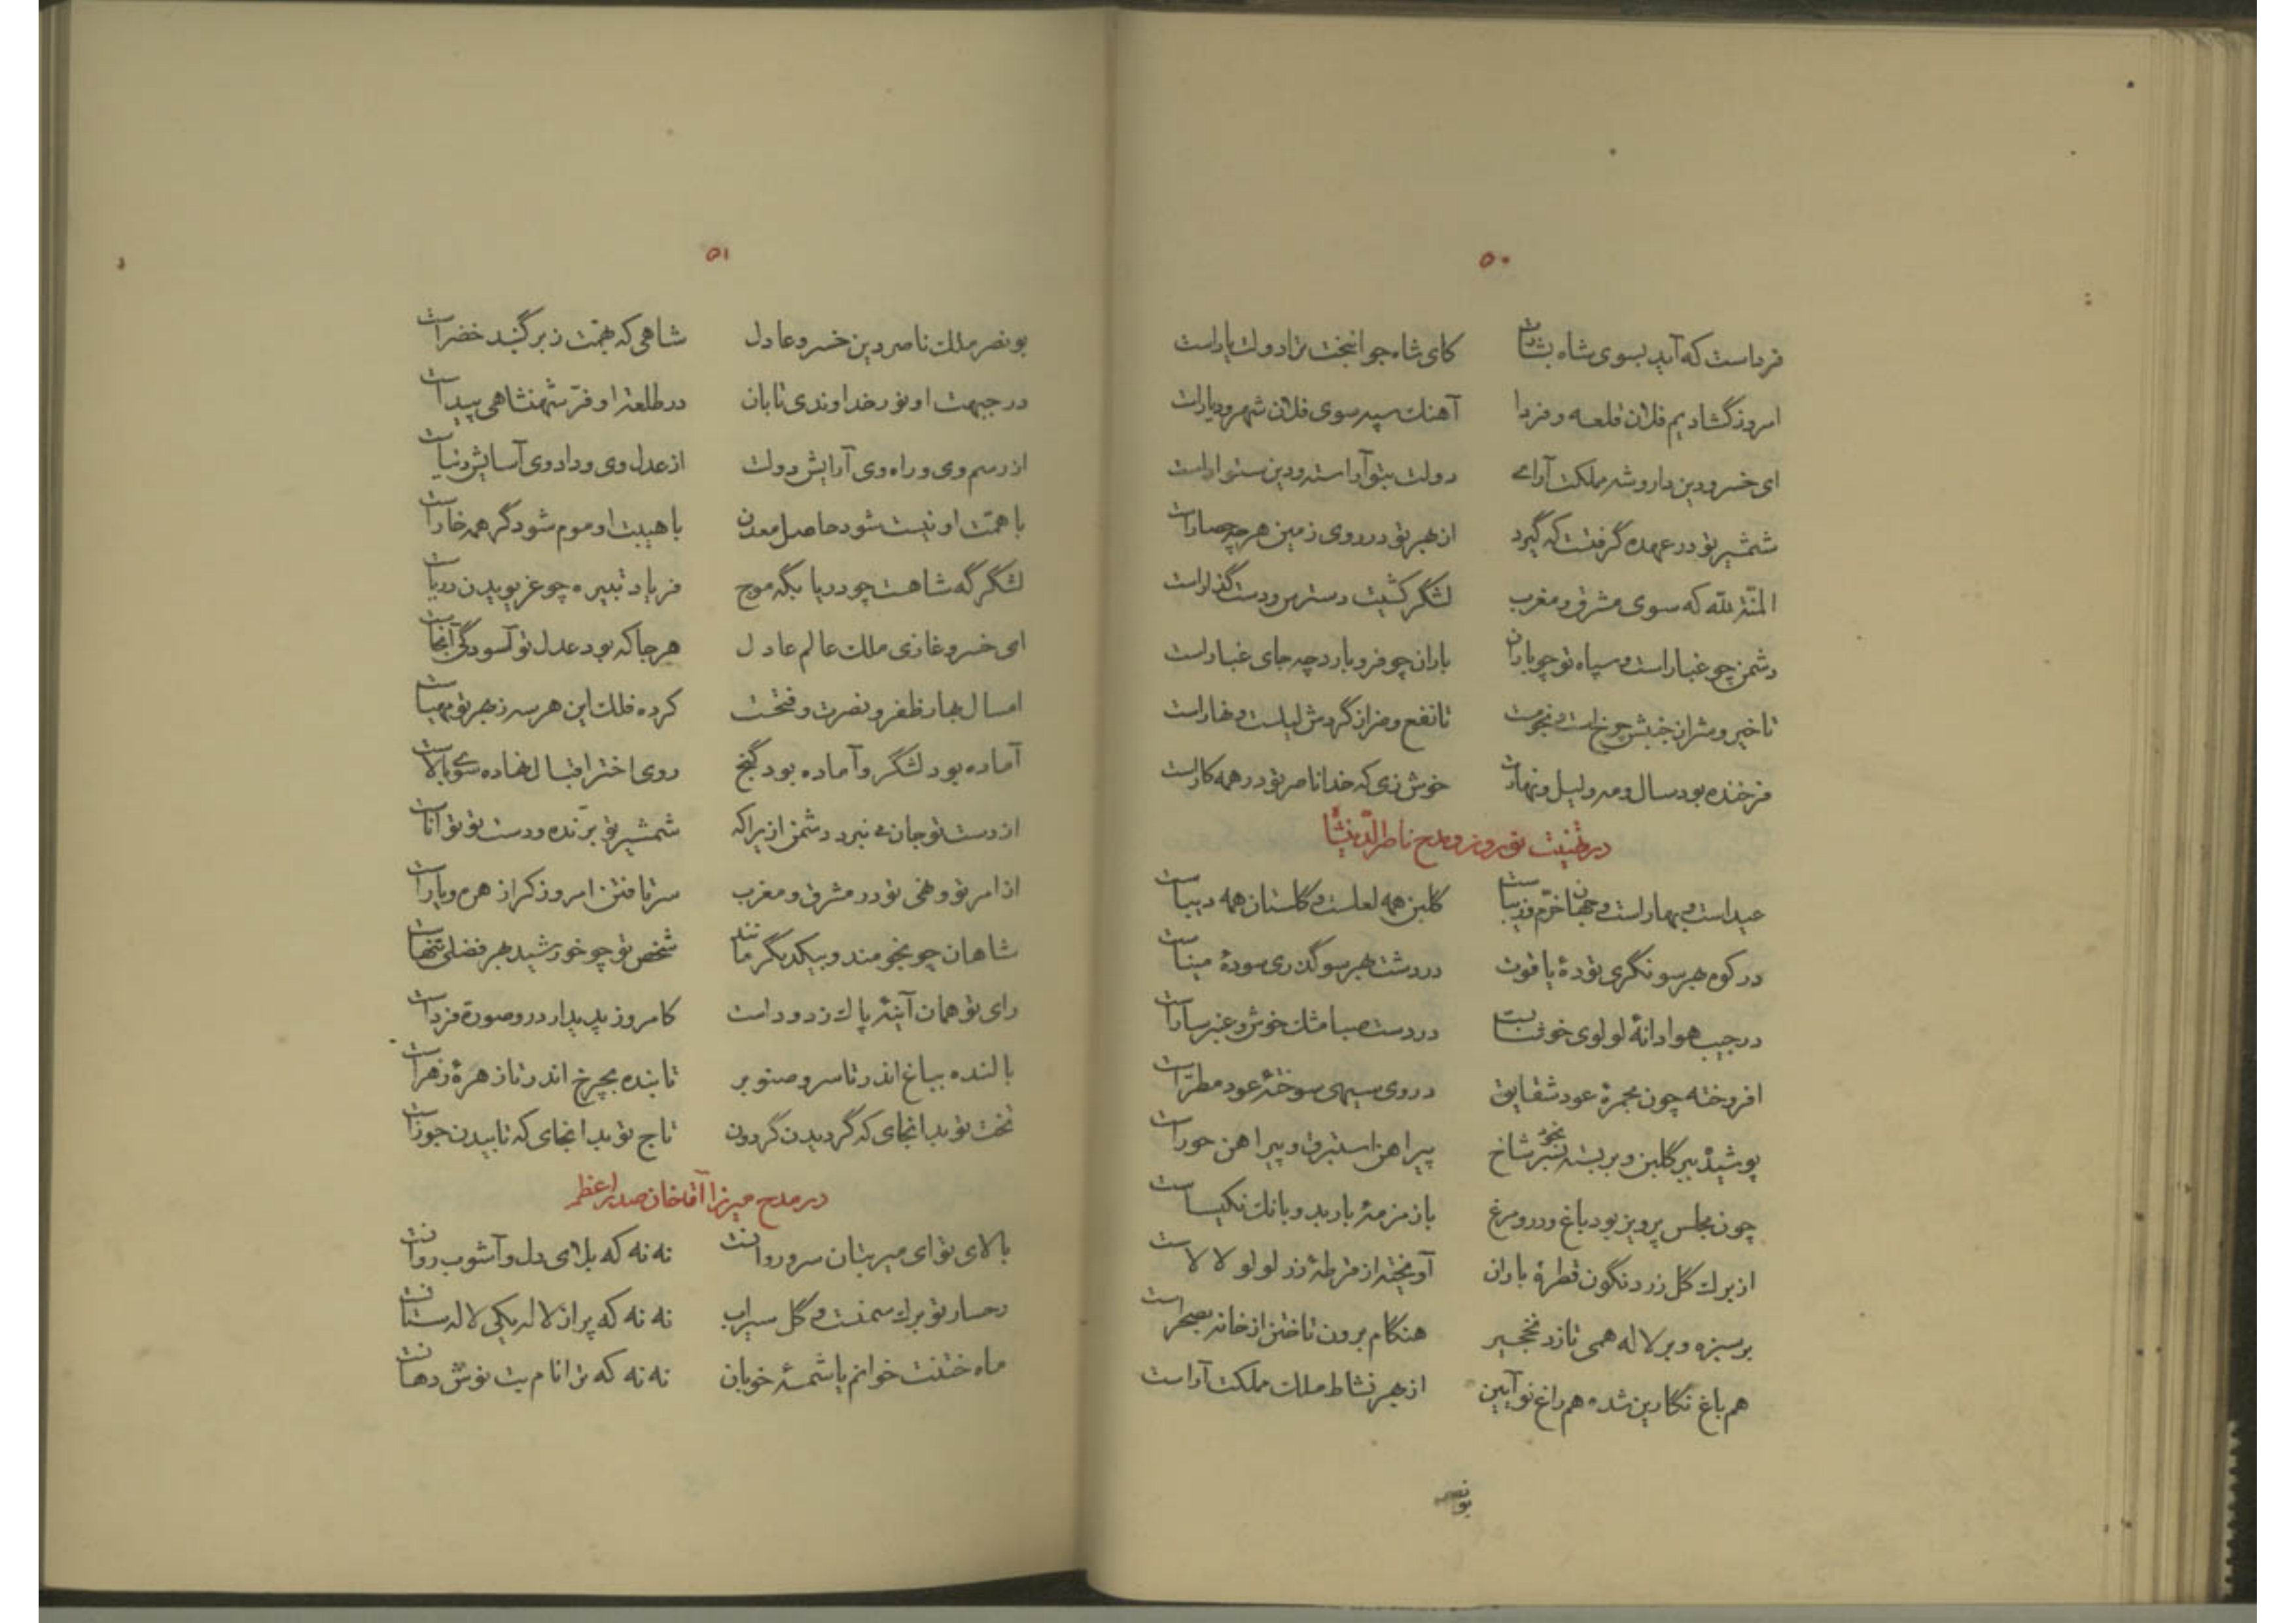 ۵۰
فرداست که آید بسوی شاه بشارت کای شاه جوانبخت ترا دولت یاراست
امروز گشادیم فلان قلعه و فردا آهنك سپه سوی فلان شهر و دیاراست
ای خسرو دین دار و شه مملکت آرای دولت بتو آراسته و دین ستواراست
شمشیر تو در عهده گرفتست که گیرد از بهر تو در روی زمین هرچه حصاراست
المنّة لله که سوی مشرق و مغرب لشگر کشیت دسترس و دست گذاراست
دشمن چو غباراست و سپاه تو چو باران باران چو فرو بارد چه جای غباراست
تا خیر و شر از جنبش چرخ است و نجومست تا نفع و ضر از گردش لیلست و نهاراست
فرخنده بود سال و مه و لیل و نهارت خوش زی که خدا ناصر تو در همه کاراست
در تهنیت نوروز و مدح ناصرالدّینشاه
عیداست و بهاراست و جهان خرّم و زیباست گلبن همه لعلست و گلستان همه دیباست
در کوه بهر سو نگری تودهٔ یاقوت در دشت بهر سو گذری سودهٔ میناست
در جیب هوا دانهٔ لولوی خوشابست در دست صبا مشك خوش و عنبر ساراست
افروخته چون مجمرهٔ عود شقایق در روی سیهی سوختهٔ عود مطرّاست
پوشیده ببر گلبن و بر بسته بخود بر شاخ پیراهن استبرق و پیراهن حوراست
چون مجلس پرویز بود باغ و درو مرغ با زمزمهٔ باربد و بانك نکیساست
از برك گل زرد نگون قطرهٔ باران آویخته از قرطهٔ زر لولو لالاست
بر سبزه و بر لاله همی تازد نخجیر هنگام برون تاختن از خانه بصحراست
هم باغ نگارین شده هم راغ نوآیین از بهر نشاط ملك مملکت آراست
بونصر
۵۱
بونصر ملك ناصر دین خسرو عادل شاهی که بهمّت زبر گنبد خضراست
در جبهت او نور خداوندی تابان در طلعت او فرّ شهنشاهی پیداست
از رسم وی و راه وی آرایش دولت از عدل وی و داد وی آسایش دنیاست
با همّت او نیست شود حاصل معدن با هیبت او موم شود گر همه خاراست
لشگرگه شاهست چو دریا بگه موج فریاد تبیره چو غریویدن دریاست
ای خسرو غازی ملك عالم عادل هرجا که بود عدل تو آسودگی آنجاست
امسال بهار ظفر و نصرت و فتحست کرده فلك این هر سه ز بهر تو مهیاست
آماده بود لشگر و آماده بود گنج روی اختر اقبال نهاده سوی بالاست
از دست تو جان می نبرد دشمن ازیراکه شمشیر تو برّنده و دست تو تواناست
از امر تو و نهی تو در مشرق و مغرب سر تافتن امروز کرا زهره و یاراست
شاهان چو نجومند و بیکدیگر مانند شخص تو چو خورشید بهر فضلی تنهاست
رای تو همان آینهٔ پاك زدوداست کامروز پدیدار درو صورة فرداست
بالنده بباغ اندر تا سرو صنوبر تابنده بچرخ اندر تا زهرهٔ زهراست
تخت تو بدانجای که گردیدن گردون تاج تو بدانجای که تابیدن جوزاست
در مدح میرزا آقاخان صدراعظم
بالای تو ای میر بتان سرو روانست نه نه که بلای دل و آشوب روانست
رخسار تو برك سمنست و گل سیراب نه نه که پر از لاله یکی لاله ستانست
ماه ختنت خوانم یا شمسهٔ خوبان نه نه که ترا نام بت نوش دهانست